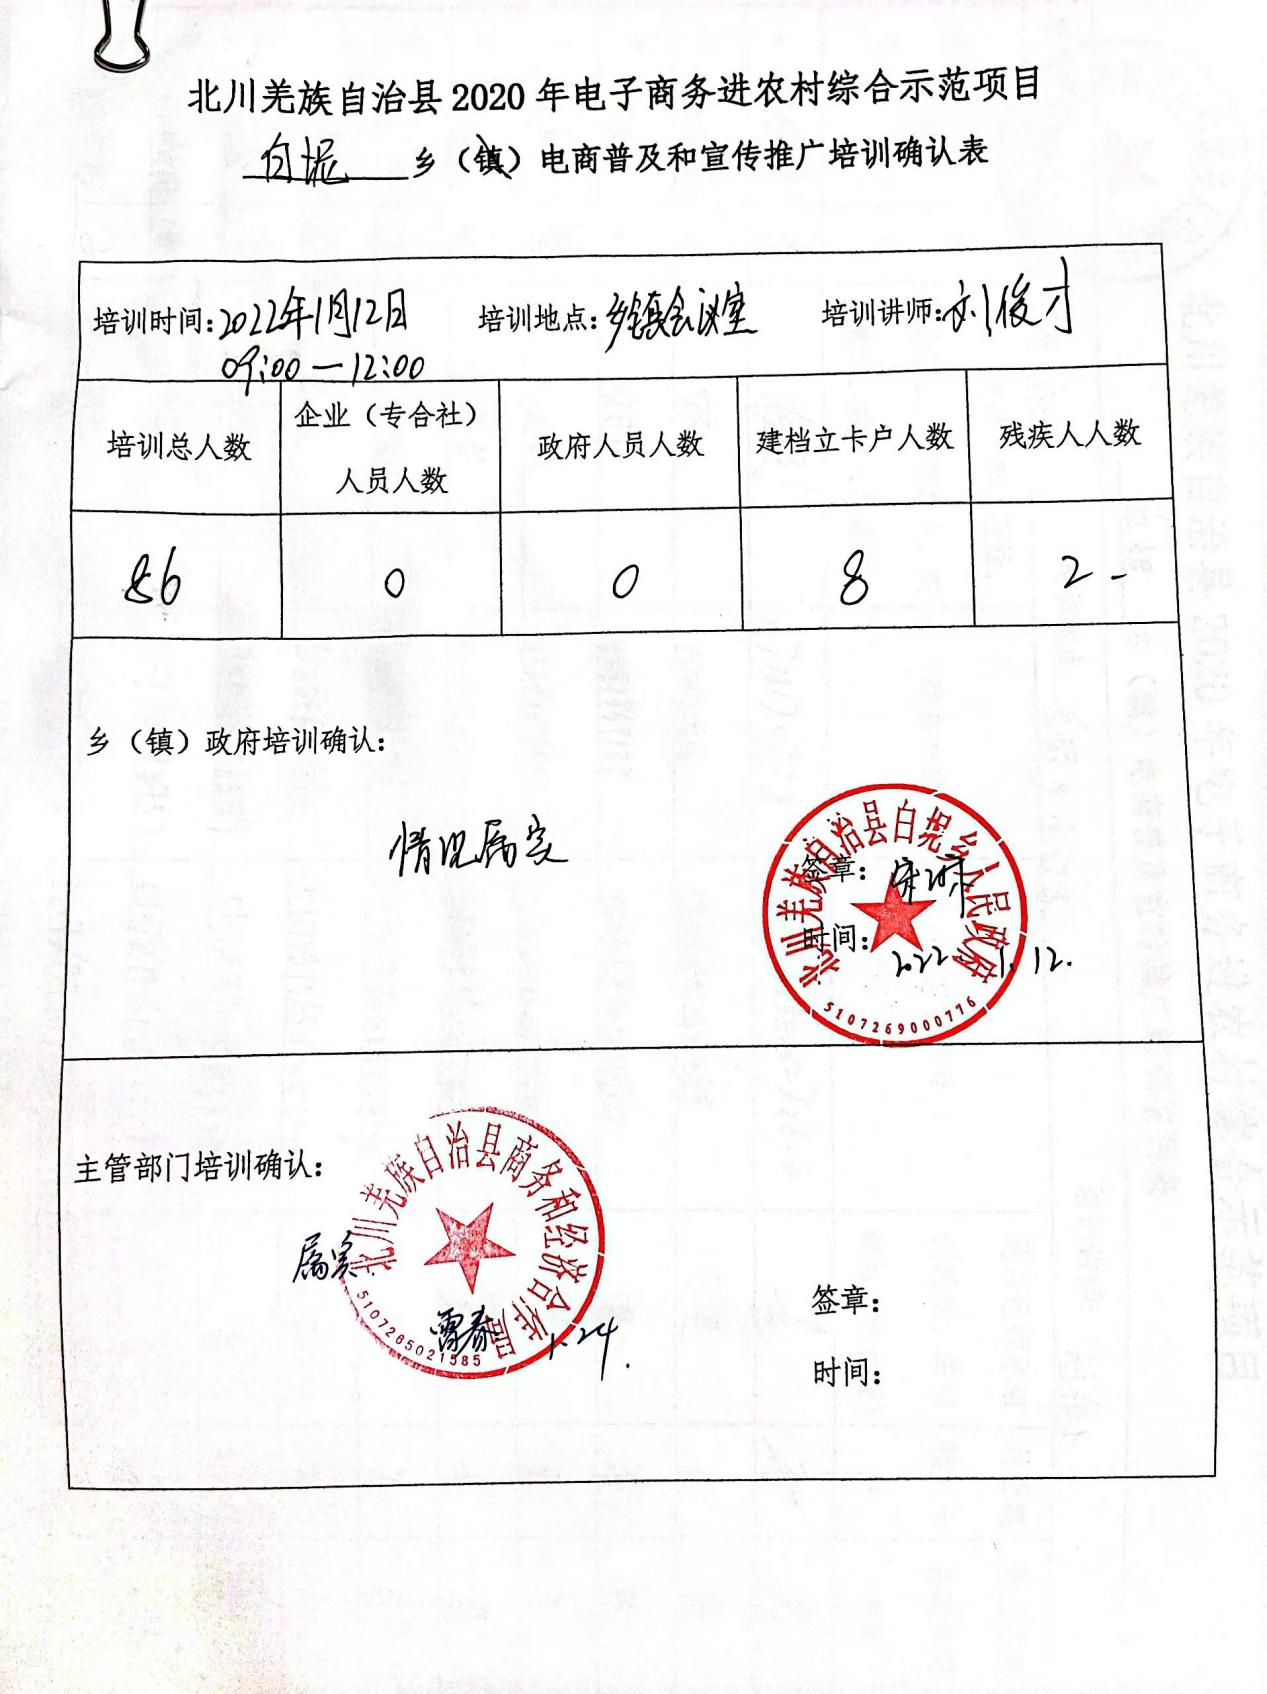 北川羌族自治县2020年电子商务进农村综合示范项目
白坭 乡（镇）电商普及和宣传推广培训确认表
培训时间：2022年1月12日 培训地点：乡镇会议室 培训讲师：刘俊才
09:00—12:00
培训总人数 企业（专合社）人员人数 政府人员人数 建档立卡户人数 残疾人人数
86 0 0 8 2
乡（镇）政府培训确认：
情况属实
北川羌族自治县白坭乡人民政府
签章：
时间：2022.1.12.
5107269000776
主管部门培训确认：
北川羌族自治县商务和经济合作局
属实
签章：
雷春 1.24.
5107265021585
时间：